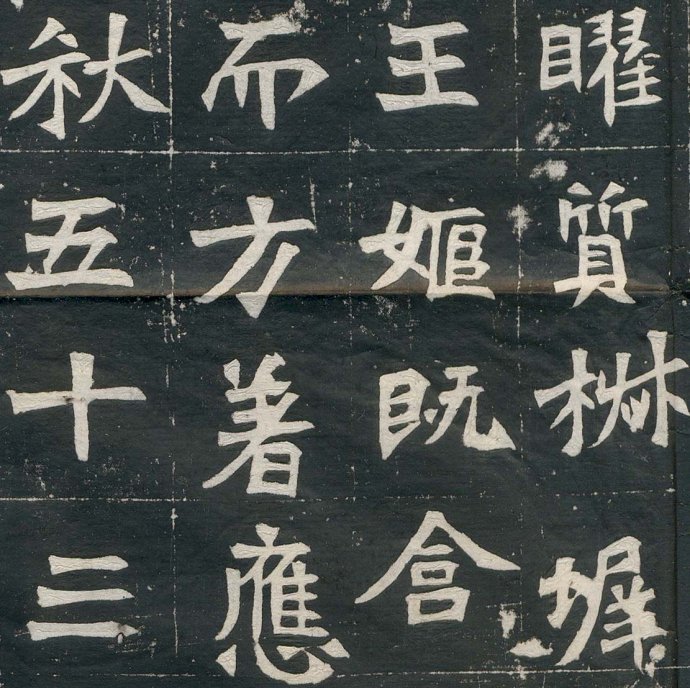 曜質椒墀
王姬既含
而方著應
秋五十三